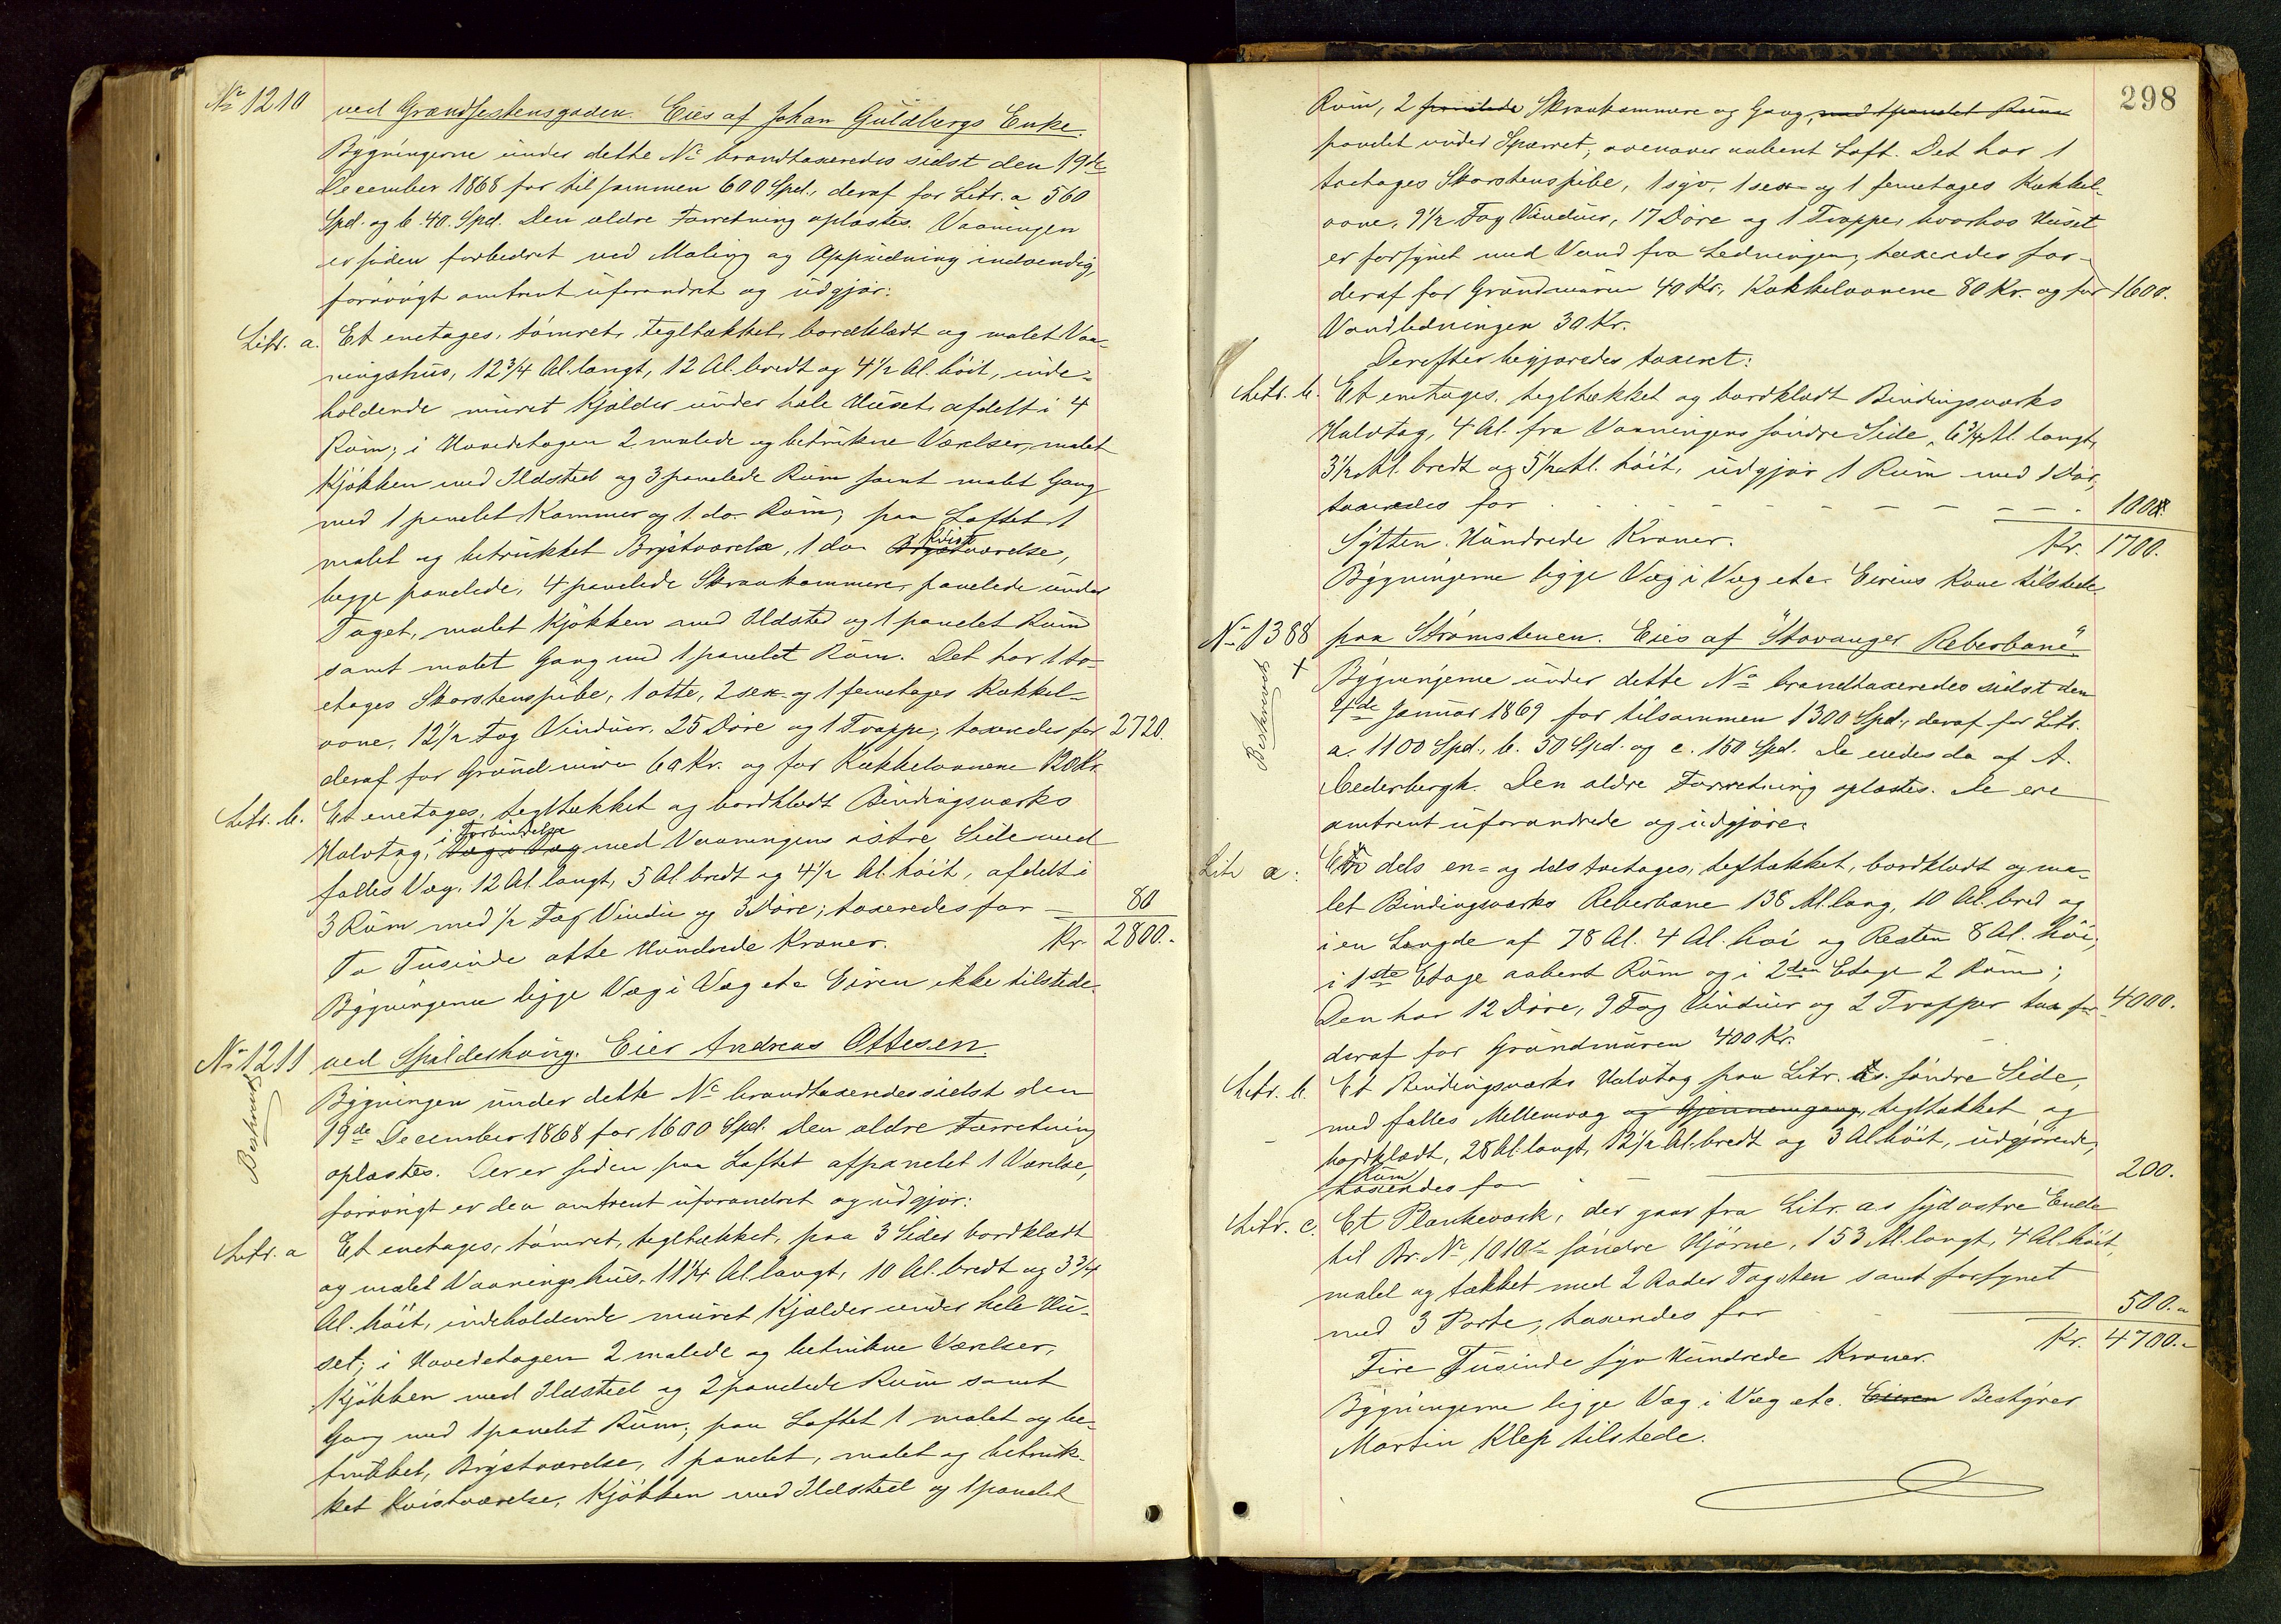 No 1210
ved Grændsestensgaden. Eies af Johan Guldbergs Enke.
Bygningerne under dette No brandtaxeredes sidst den 19de
December 1868 for tilsammen 600 Spd., deraf for Litr. a 560
Spd. og b. 40. Spd. Den ældre Forretning oplæstes. Vaaningen
er siden forbedret ved Maling og Oppudsning indvendig,
forøvrigt omtrent uforandret og udgjør:
Litr. a. Et enetages, tømret, tegltækket, bordklædt og malet Vaa-
ningshus, 12 3/4 Al. langt, 12 Al. bredt og 4 1/2 Al. höit, inde-
holdende muret Kjælder under hele Huset, afdelt i 4
Rum; i Hovedetagen 2 malede og betrukne Værelser, malet
Kjøkken med Ildsted og 3 panelede Rum samt malet Gang
med 1 panelet Kammer og 1 do. Rum; paa Loftet 1
malet og betrukket Brystværelse, 1 do. Kvistværelse,
begge panelede, 4 panelede Skraakammere, panelede under
Taget, malet Kjøkken med Ildsted og 1 panelet Rum
samt malet Gang med 1 panelet Rum. Det har 1 to-
etages Skorstenspibe, 1 otte, 2 sex- og 1 femetages Kakkel-
ovne, 12 1/2 Fag Vinduer, 25 Døre og 1 Trappe; taxeredes for 2720.
deraf for Grundmuren 60 Kr. og for Kakkelovnene 120 Kr.
Litr. b. Et enetages, tegltækket og bordklædt Bindingsværks
Halvtag, i Forbindelse Væg i Væg med Vaaningens østre Side med
fælles Væg, 12 Al. langt, 5 Al. bredt og 4 1/2 Al. höit, afdelt i
3 Rum med 1/2 Fag Vindu og 3 Døre; taxeredes for 80
To Tusinde otte Hundrede Kroner. Kr. 2800.
Bygningerne ligge Væg i Væg etc. Eieren ikke tilstede.
No 1211 ved Spilderhaug. Eies Andreas Ottesen.
Beskreved
Bygningen under dette No brandtaxeredes sidst den
19de December 1868 for 1600 Spd. Den ældre Forretning
oplæstes. Der er siden paa Loftet afpanelet 1 Værelse,
forøvrigt er den omtrent uforandret og udgjør:
Litr. a Et enetages, tømret, tegltækket, paa 3 Sider bordklædt
og malet Vaaningshus, 11 1/4 Al. langt, 10 Al. bredt og 3 3/4
Al. höit, indeholdende muret Kjælder under hele Hu-
set; i Hovedetagen 2 malede og betrukne Værelser,
Kjøkken med Ildsted og 2 panelede Rum samt
Gang med 1 panelet Rum; paa Loftet 1 malet og be-
trukket, Brystværelse, 1 panelet, malet og betruk-
ket Kvistværelse, Kjøkken med Ildsted og 1 panelet
298
Rum, 2 panelede Skraakammere og Gang, med 1 panelet Rum
panelet under Sparret, ovenover aabent Loft. Det har 1
toetages Skorstenspibe, 1 syv, 1 sex- og 1 femetages Kakkel-
ovne, 9 1/2 Fag Vinduer, 17 Døre og 1 Trappe, hvorhos Huset
er forsynet med Vand fra Ledningen; taxeredes for
deraf for Grundmuren 40 Kr., Kakkelovnene 80 Kr. og for 1600.
Vandledningen 30 Kr.
Derefter begjæredes taxeret:
Litr. b. Et enetages, tegltækket og bordklædt Bindingsværks
Halvtag, 4 Al. fra Vaaningens søndre Side, 6 3/4 Al. langt,
3 1/2 Al. bredt og 5 1/2 Al. höit, udgjør 1 Rum med 1 Dør,
taxeredes for 100.
Sytten Hundrede Kroner. Kr. 1700.
Bygningerne ligge Væg i Væg etc. Eierens Kone tilstede
No 1388 paa Strømstenen. Eies af "Stavanger Reberbane".
Beskreved
Bygningerne under dette No brandtaxeredes sidst den
4de Januar 1869 for tilsammen 1300 Spd., deraf for Litr.
a. 1100 Spd., b. 50 Spd. og c. 150 Spd. De eiedes da af A.
Cederbergh. Den ældre Forretning oplæstes. De ere
omtrent uforandrede og udgjøre:
Litr a: En dels en- og dels toetages, tegltækket, bordklædt og ma-
let Bindingsværks Reberbane 138 Al. lang, 10 Al. bred og
i en Længde af 78 Al. 4 Al. høi og Resten 8 Al. høi,
i 1ste Etage aabent Rum og i 2den Etage 2 Rum;
Den har 12 Døre, 9 Fag Vinduer og 2 Trapper tax for 4000.
deraf for Grundmuren 400 Kr.
Litr. b. Et Bindingsværks Halvtag paa Litr. as. søndre Side,
med fælles Mellemvæg og Gjennemgang, tegltækket og
bordklædt, 28 Al. langt, 12 1/2 Al. bredt og 3 Al. höit, udgjørende,
1 Rum
taxeredes for 200.
Litr. c. Et Plankeværk, der gaar fra Litr. as sydøstre Ende
til Br. No 1010s søndre Hjørne, 153 Al. langt, 4 Al. höit,
malet og tækket med 2 Rader Tagsten samt forsynet
med 3 Porte; taxeredes for 500.
Fire Tusinde syv Hundrede Kroner. Kr. 4700.
Bygningerne ligge Væg i Væg etc. Eieren Bestyrer
Martin Klep tilstede.